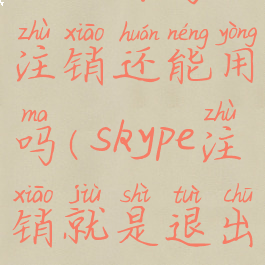 zhù xiāo huán néng yòng
注销还能用
ma zhù
吗(skype注
xiāo jiù shì tuì chū
销就是退出